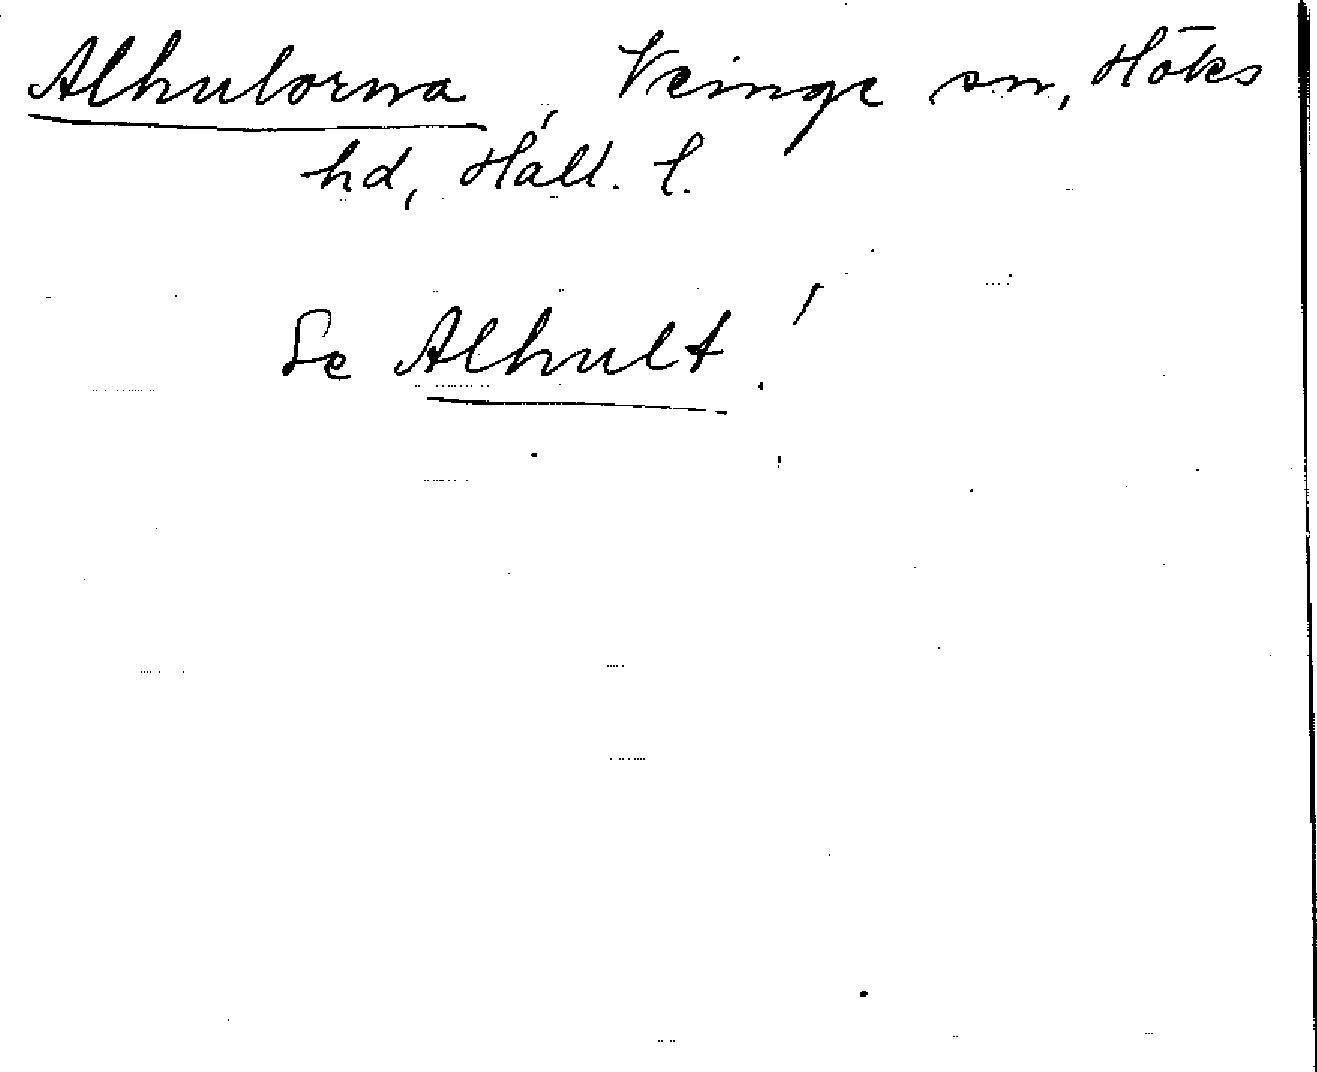 Alhulorna, Veinge sn, Höks
hd, Hall. l.
Se Alhult!